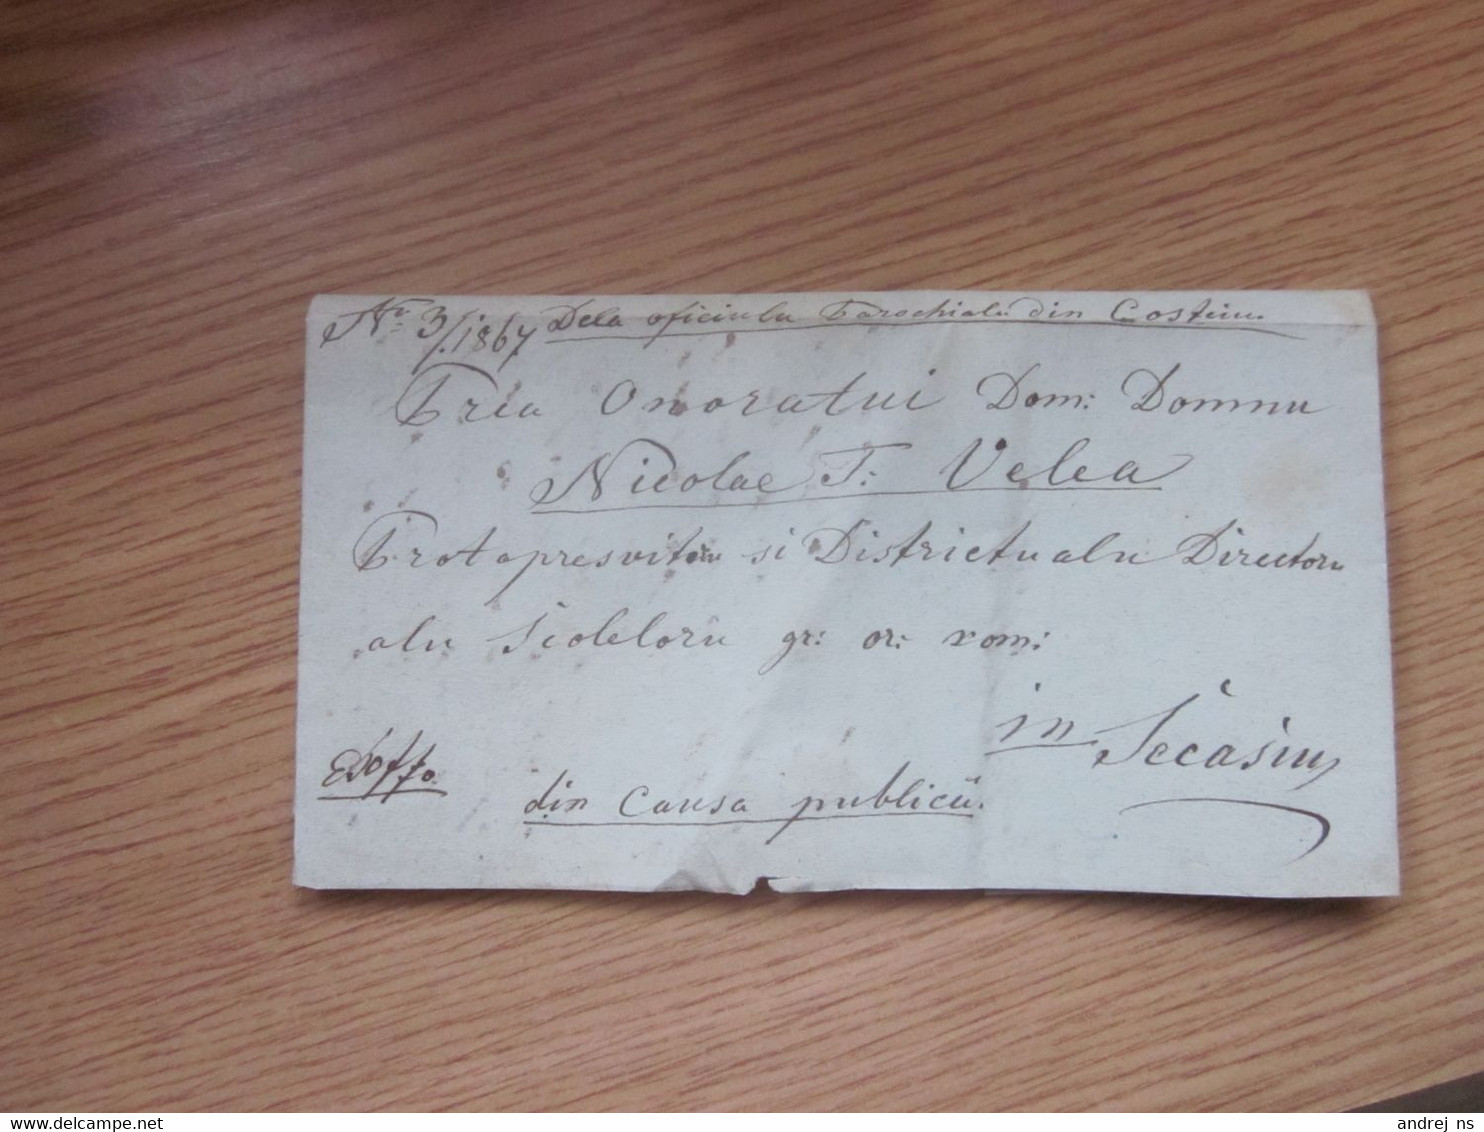 Nr: 3/.1867 Dela oficiulu Parochialu din Costeiu.
Prea Onoratui Dom: Domnu
Nicolae T: Velea
Protopresviteru si Districtualu Directoru
alu Scoleloru gr: or: rom:
in Secasiu
din Causa publicŭ.
andrej_ns